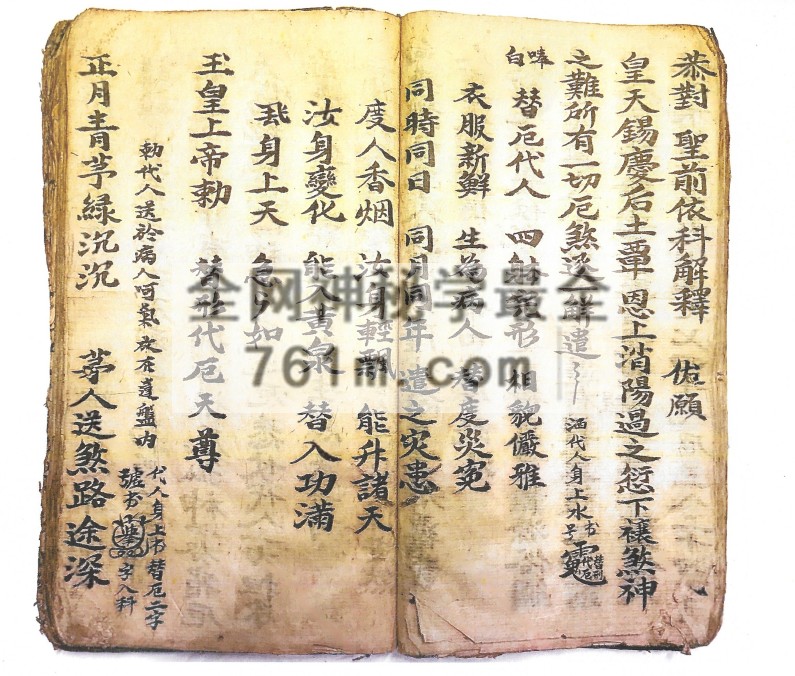 恭對 聖前依科解釋 伏願
皇天錫慶后土覃恩上消陽過之愆下禳煞神
之難所有一切厄煞逐一解遣
洒代人身上水
書
替形代厄
白
替厄代人 四 形 相貌儼雅
衣服新鮮 生為病人 替度災冤
同時同日 同月同年 遣之災患
度人香烟 汝身輕飄 能升諸天
汝身變化 能入黃泉 替入功滿
飛身上天 急如
玉皇上帝勅 替形代厄天尊
勅代人送於病人呵氣 盤內
代人身上书替厄二字
號书 字入科
正月青茅綠沉沉 茅人送煞路途深
全网神秘学最
761m.com